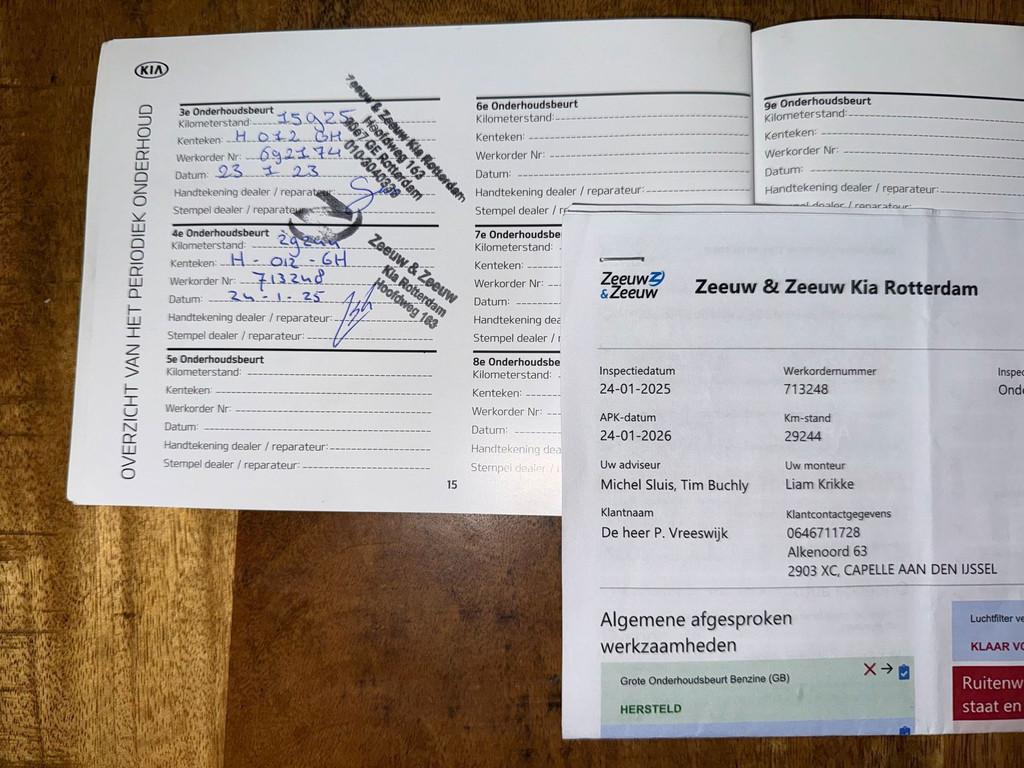 KIA
OVERZICHT VAN HET PERIODIEK ONDERHOUD
3e Onderhoudsbeurt
Kilometerstand: 15925
Kenteken: H 012 GH
Werkorder Nr: 692174
Datum: 23 1 23
Handtekening dealer / reparateur:
Stempel dealer / reparateur
Zeeuw & Zeeuw Kia Rotterdam
Hoofdweg 163
3067 GE Rotterdam
4e Onderhoudsbeurt
Kilometerstand: 29244
Kenteken: H-012-GH
Werkorder Nr: 713248
Datum: 24-1-25
Handtekening dealer / reparateur:
Stempel dealer / reparateur:
Zeeuw & Zeeuw
Kia Rotterdam
Hoofdweg 163
5e Onderhoudsbeurt
Kilometerstand:
Kenteken:
Werkorder Nr:
Datum:
Handtekening dealer / reparateur:
Stempel dealer / reparateur:
6e Onderhoudsbeurt
Kilometerstand:
Kenteken:
Werkorder Nr:
Datum:
Handtekening dealer / reparateur:
Stempel dealer / r
7e Onderhoudsbe
Kilometerstand:
Kenteken:
Werkorder Nr:
Datum:
Handtekening dea
Stempel dealer / r
8e Onderhoudsbe
Kilometerstand:
Kenteken:
Werkorder Nr:
Datum:
Handtekening dea
Stempel dealer / r
15
9e Onderhoudsbeurt
Kilometerstand:
Kenteken:
Werkorder Nr:
Datum:
Handtekening dealer / reparateur:
Zeeuw
&Zeeuw
Zeeuw & Zeeuw Kia Rotterdam
Inspectiedatum
24-01-2025
Werkordernummer
713248
Inspec
Onde
APK-datum
24-01-2026
Km-stand
29244
Uw adviseur
Michel Sluis, Tim Buchly
Uw monteur
Liam Krikke
Klantnaam
De heer P. Vreeswijk
Klantcontactgegevens
0646711728
Alkenoord 63
2903 XC, CAPELLE AAN DEN IJSSEL
Algemene afgesproken
werkzaamheden
Grote Onderhoudsbeurt Benzine (GB)
HERSTELD
Luchtfilter ve
KLAAR VO
Ruitenw
staat en